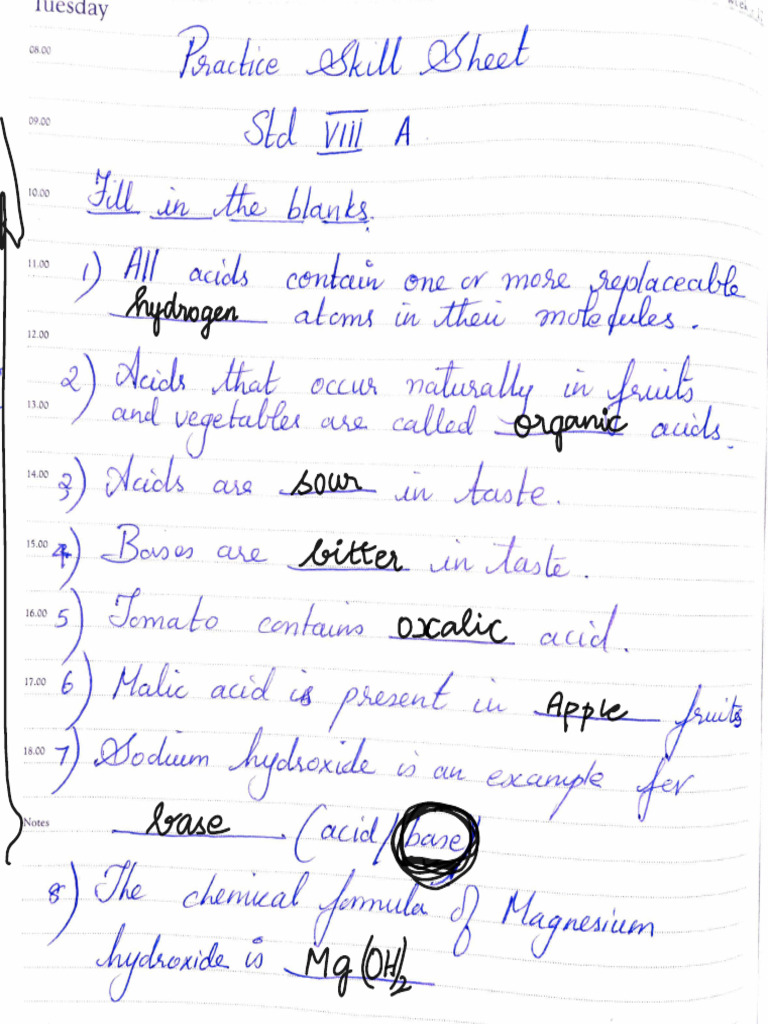 Tuesday
Practice Skill Sheet
08.00
Std VIII A
09.00
Fill in the blanks.
10.00
1) All acids contain one or more replaceable
11.00
hydrogen atoms in their molecules.
12.00
2) Acids that occur naturally in fruits
13.00
and vegetables are called organic acids.
14.00
3) Acids are sour in taste.
15.00
4) Bases are bitter in taste.
16.00
5) Tomato contains oxalic acid.
17.00
6) Malic acid is present in Apple fruits
18.00
7) Sodium hydroxide is an example for
Notes
base (acid/base)
8) The chemical formula of Magnesium
hydroxide is Mg(OH)2